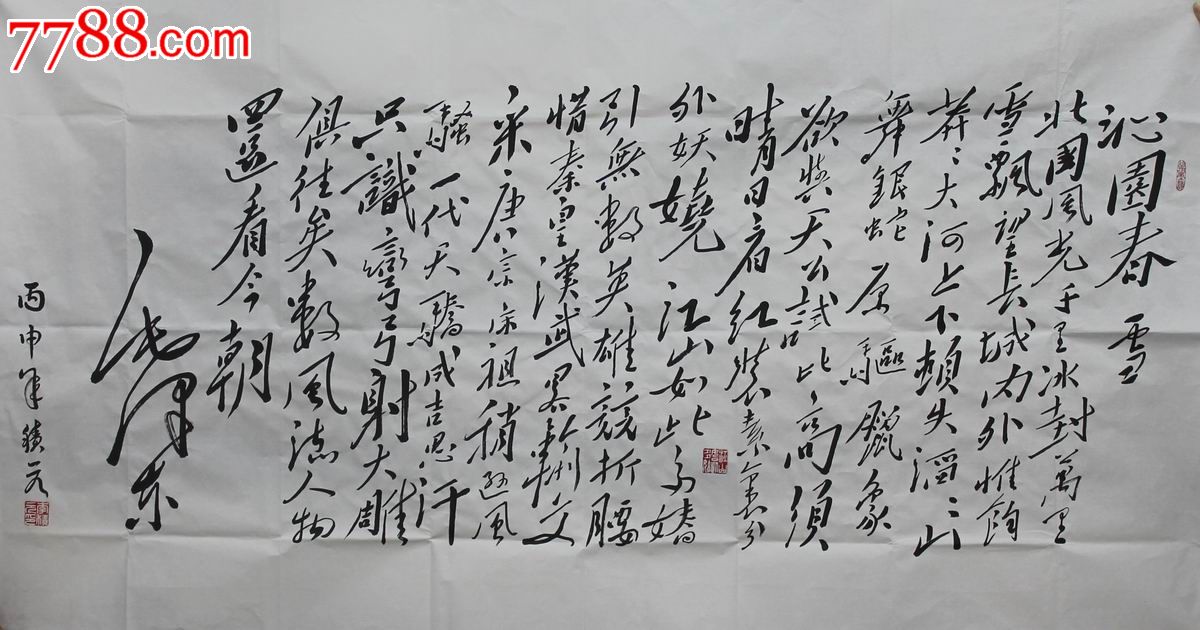 7788.com
沁園春 雪
北國風光千里冰封萬里
雪飄望長城内外惟餘
莽〻大河上下頓失滔〻山
舞銀蛇原驅蠟象
欲與天公試比高須
晴日看紅裝素裹分
外妖嬈江山如此多嬌
引無數英雄競折腰
惜秦皇漢武略輸文
采唐宗宋祖稍遜風
騷一代天驕成吉思汗
只識彎弓射大雕
俱往矣數風流人物
還看今朝
毛澤東
丙申年